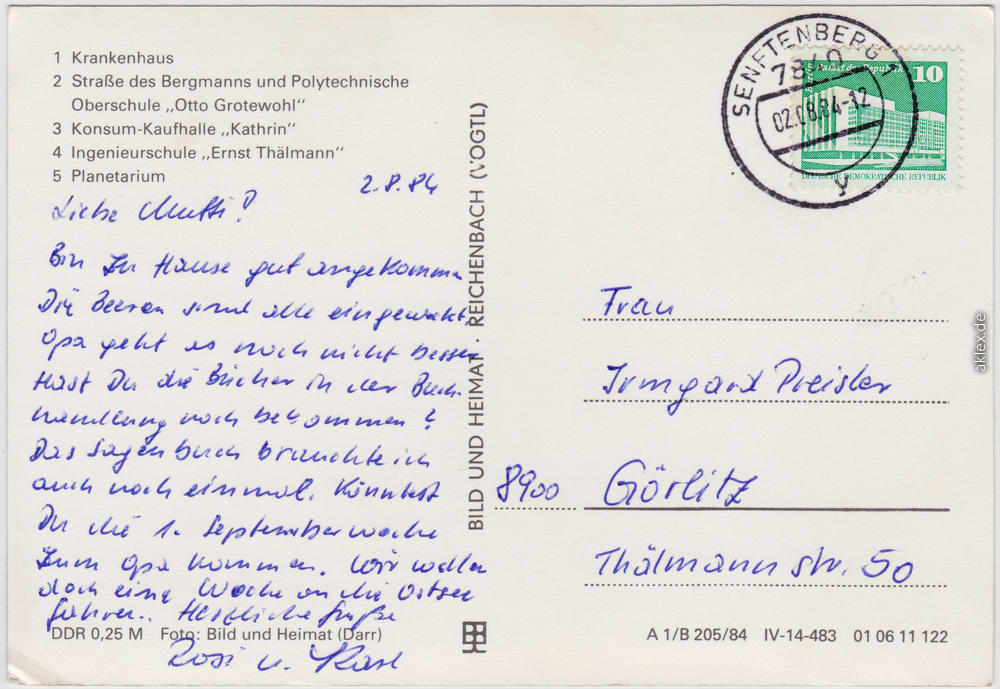 1 Krankenhaus
2 Straße des Bergmanns und Polytechnische
Oberschule „Otto Grotewohl“
3 Konsum-Kaufhalle „Kathrin“
4 Ingenieurschule „Ernst Thälmann“
5 Planetarium
2.8.84
Liebe Mutti!
Bin zu Hause gut angekommen
Die Beeren sind alle eingeweckt.
Opa geht es noch nicht besser
Hast Du die Bücher in der Buch-
handlung noch bekommen?
Das Sagenbuch brauchte ich
auch noch einmal. Könntest
Du die 1. Septemberwoche
zum Opa kommen. Wir wollen
doch eine Woche an die Ostsee
fahren. Herzliche Grüße
Rosi u. Karl
DDR 0,25 M Foto: Bild und Heimat (Darr)
BILD UND HEIMAT · REICHENBACH (VOGTL)
SENFTENBERG 1
7840
02.08.84-12
y
Palast der Republik 10
DEUTSCHE DEMOKRATISCHE REPUBLIK
Frau
Irmgard Preisler
8900 Görlitz
Thälmannstr. 50
A 1/B 205/84 IV-14-483 01 06 11 122
aklex.de